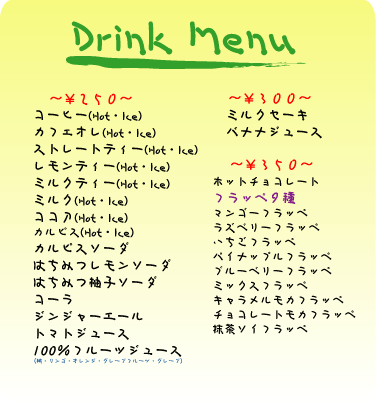 Drink Menu
～￥250～
コーヒー(Hot・Ice)
カフェオレ(Hot・Ice)
ストレートティー(Hot・Ice)
レモンティー(Hot・Ice)
ミルクティー(Hot・Ice)
ミルク(Hot・Ice)
ココア(Hot・Ice)
カルピス(Hot・Ice)
カルピスソーダ
はちみつレモンソーダ
はちみつ柚子ソーダ
コーラ
ジンジャーエール
トマトジュース
100%フルーツジュース
(桃・リンゴ・オレンジ・グレープフルーツ・グレープ)
～￥300～
ミルクセーキ
バナナジュース
～￥350～
ホットチョコレート
フラッペ9種
マンゴーフラッペ
ラズベリーフラッペ
いちごフラッペ
パイナップルフラッペ
ブルーベリーフラッペ
ミックスフラッペ
キャラメルモカフラッペ
チョコレートモカフラッペ
抹茶ソイフラッペ